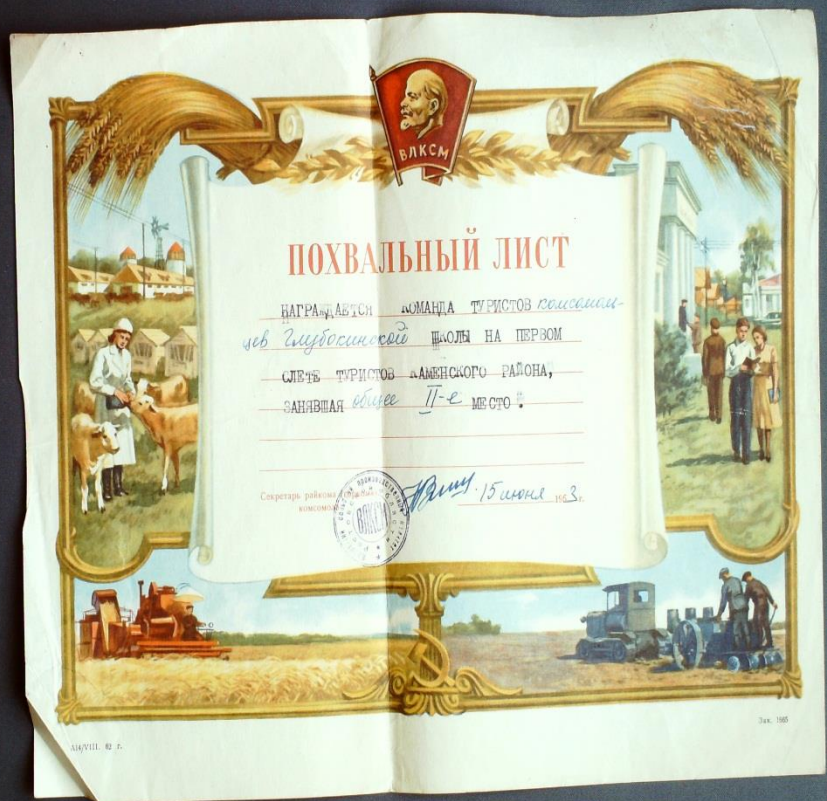 ВЛКСМ
ПОХВАЛЬНЫЙ ЛИСТ
НАГРАЖДАЕТСЯ КОМАНДА ТУРИСТОВ комсомоль-
цев Глубокинской ШКОЛЫ НА ПЕРВОМ
СЛЕТЕ ТУРИСТОВ КАМЕНСКОГО РАЙОНА,
ЗАНЯВШАЯ общее II-е МЕСТО.
Секретарь райкома
комсомола
15 июня 1963 г.
ВЛКСМ
А14/VIII. 62 г.
Зак. 1885